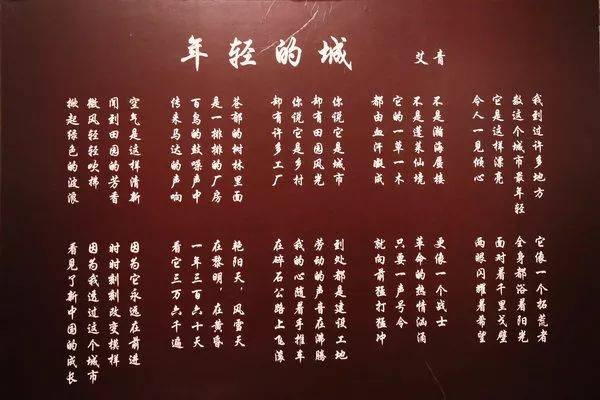 年轻的城
艾青
我到过许多地方
数这个城市最年轻
它是这样漂亮
令人一见倾心
不是瀚海蜃楼
不是蓬莱仙境
它的一草一木
都由血汗凝成
你说它是城市
却有田园风光
你说它是乡村
却有许多工厂
苍郁的树林里面
是一排排的厂房
百鸟的鼓噪声中
传来马达的声响
空气是这样清新
闻到田园的芳香
微风轻轻吹拂
掀起绿色的波浪
它像一个拓荒者
全身都浴着阳光
面对着千里戈壁
两眼闪耀着希望
更像一个战士
革命的热情汹涌
只要一声号令
就向前猛打猛冲
到处都是建设工地
劳动的声音在沸腾
我的心随着手推车
在碎石公路上飞滚
艳阳天,风雪天
在黎明,在黄昏
一年三百六十天
看它三万六千遍
因为它永远在前进
时时刻刻改变模样
因为我透过这个城市
看见了新中国的成长